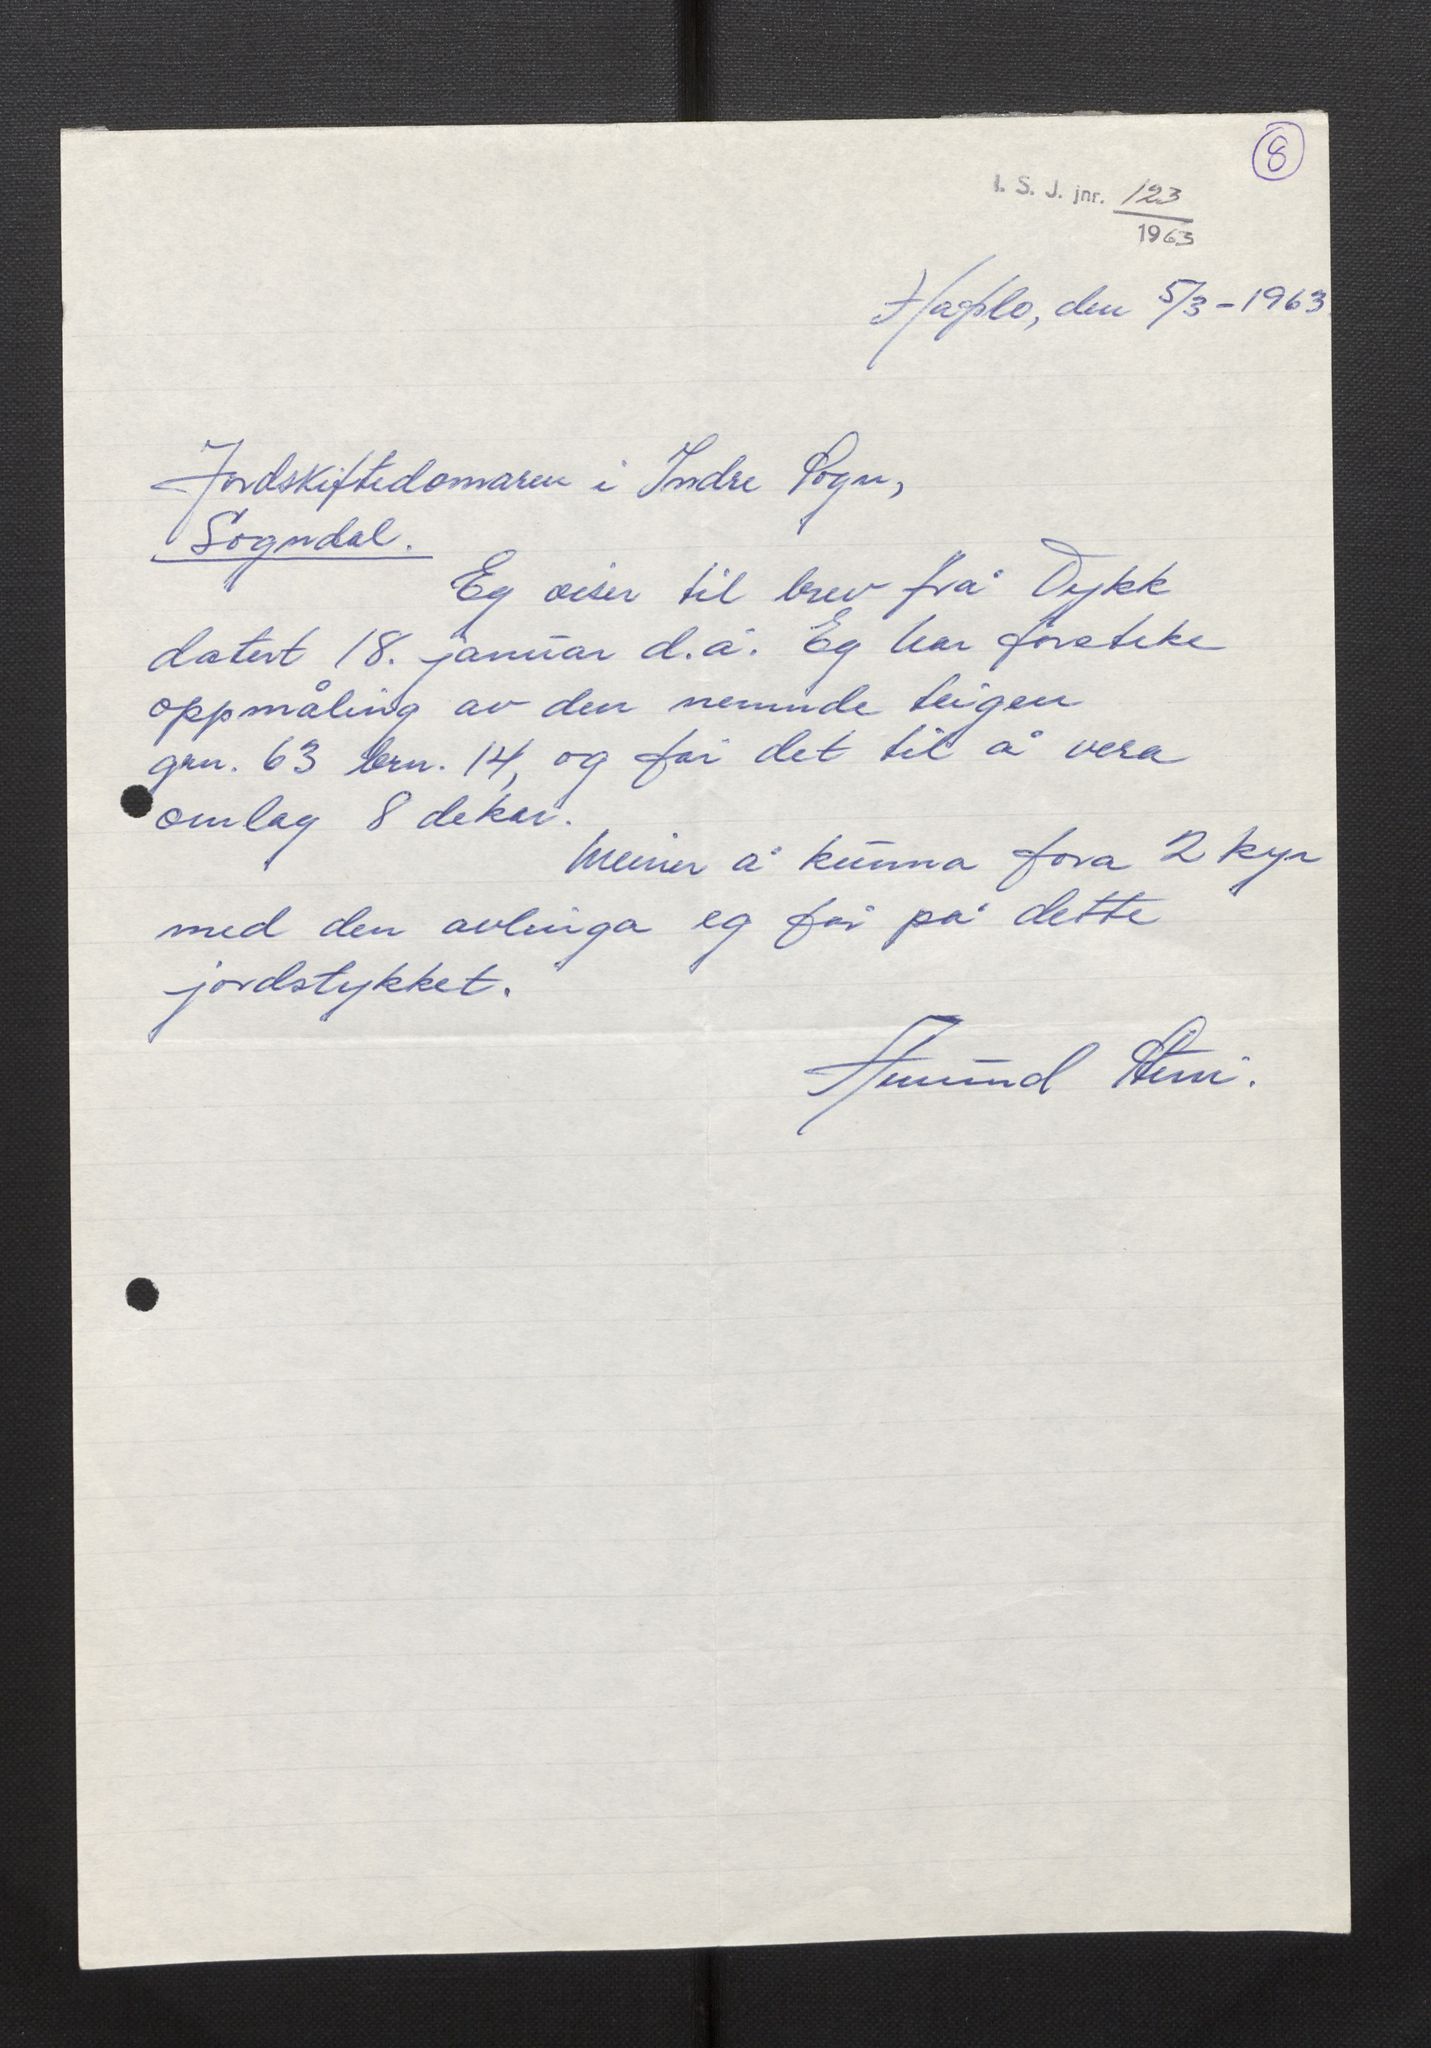 8
I. S. J. jnr. 123
1963
Hafslo, den 5/3-1963
Jordskiftedomaren i Indre Sogn,
Sogndal.
Eg viser til brev frå Dykk
datert 18. januar d.å. Eg har foreteke
oppmåling av den nemnde teigen
grn. 63 brn. 14, og får det til å vera
omlag 8 dekar.
Meiner å kunna fora 2 kyr
med den avlinga eg får på dette
jordstykket.
Amund